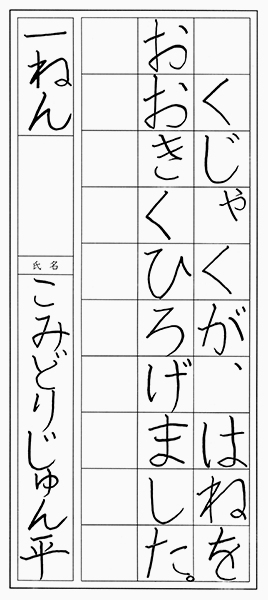 くじゃくが、はねを
おおきくひろげました。
一ねん
氏名
こみどりじゅん平